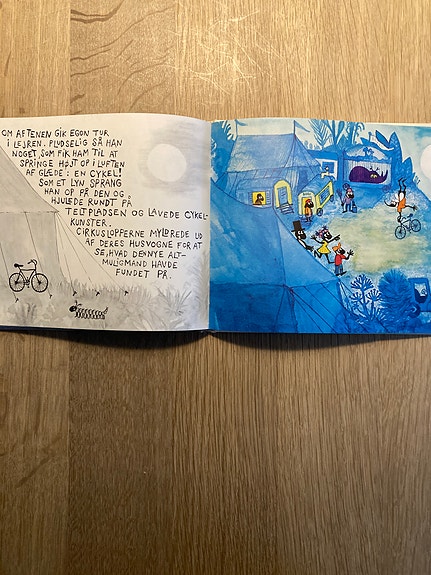 OM AFTENEN GIK EGON TUR
I LEJREN. PLUDSELIG SÅ HAN
NOGET, SOM FIK HAM TIL AT
SPRINGE HØJT OP I LUFTEN
AF GLÆDE: EN CYKEL!
SOM ET LYN SPRANG
HAN OP PÅ DEN OG
HJULEDE RUNDT PÅ
TELTPLADSEN OG LAVEDE CYKEL-
KUNSTER.
CIRKUSLOPPERNE MYLDREDE UD
AF DERES HUSVOGNE FOR AT
SE, HVAD DEN NYE ALT-
MULIGMAND HAVDE
FUNDET PÅ.